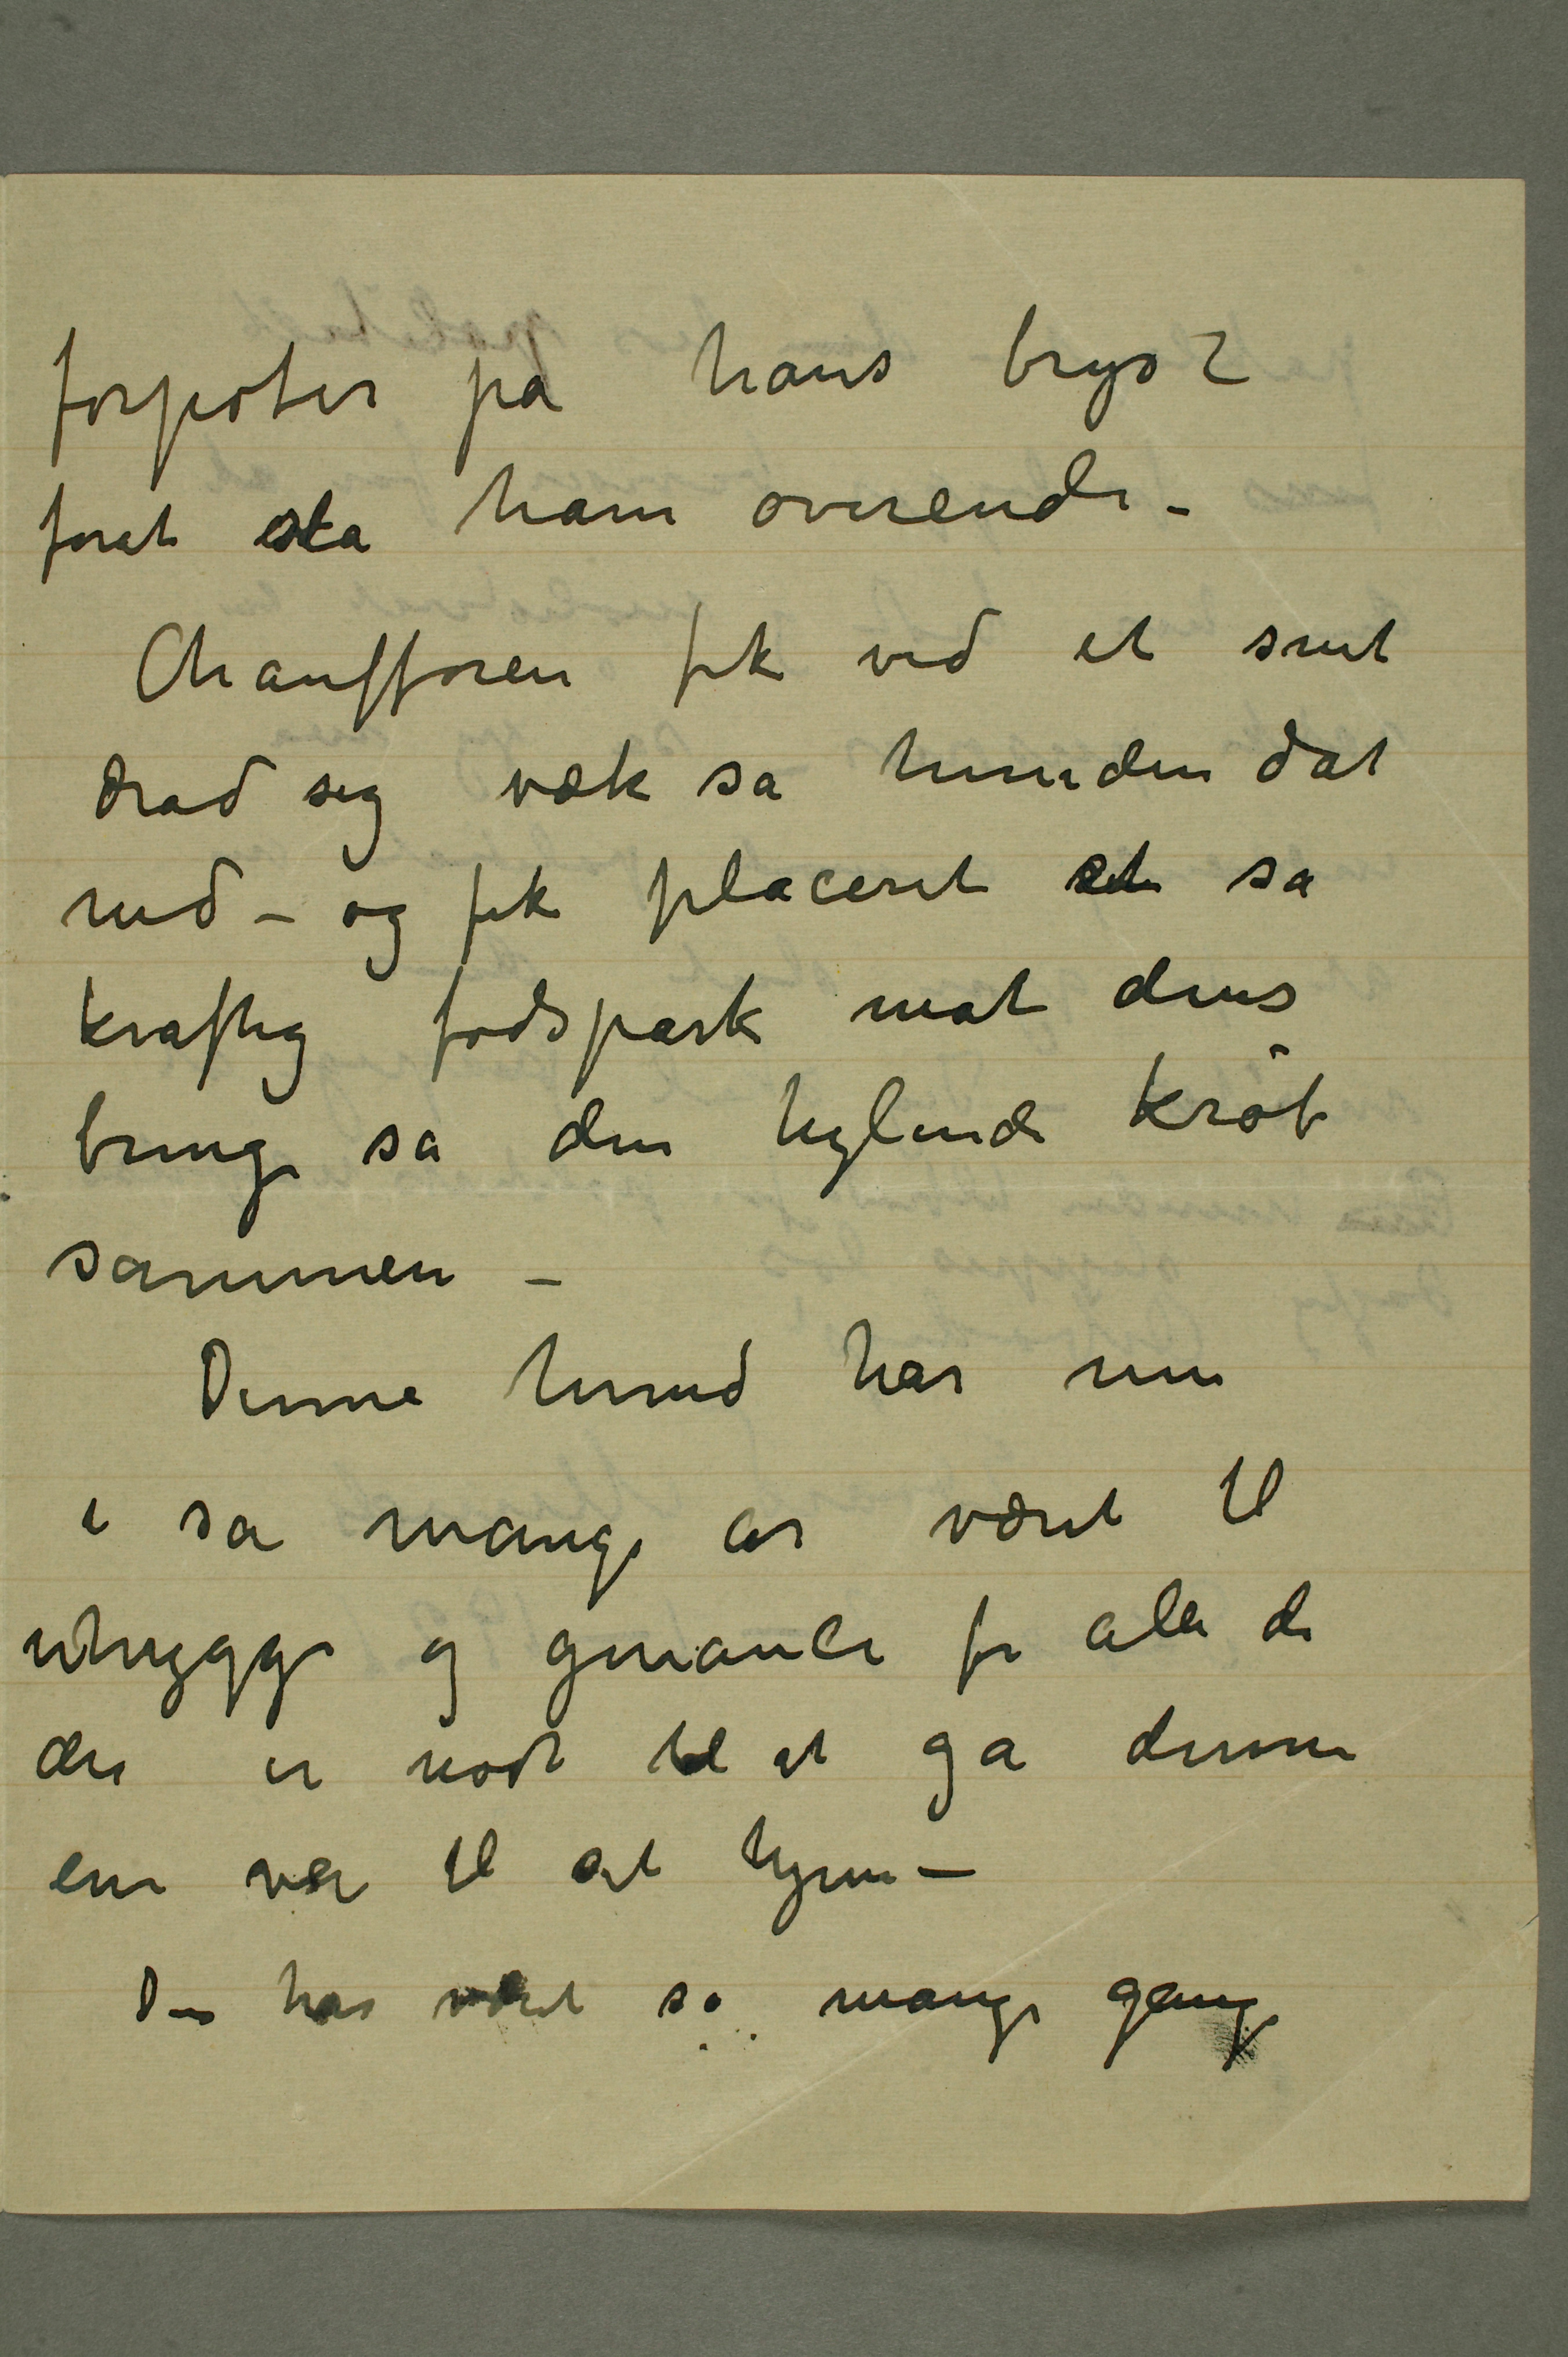 forpoter på hans bryst
forat sla ham overende –
Chaufføren fik ved et snit
drad sig væk sa hunden dat
ned – og fik placeret et sa
kraftig fodspark mot dens
bringe sa den hylende krøb
sammen –
Denne hund har nu
i sa mange ar været til
uhygge og genance for alle de
der er nødt til at ga denne
ene vei til sit hjem –
Den har været så mange gange